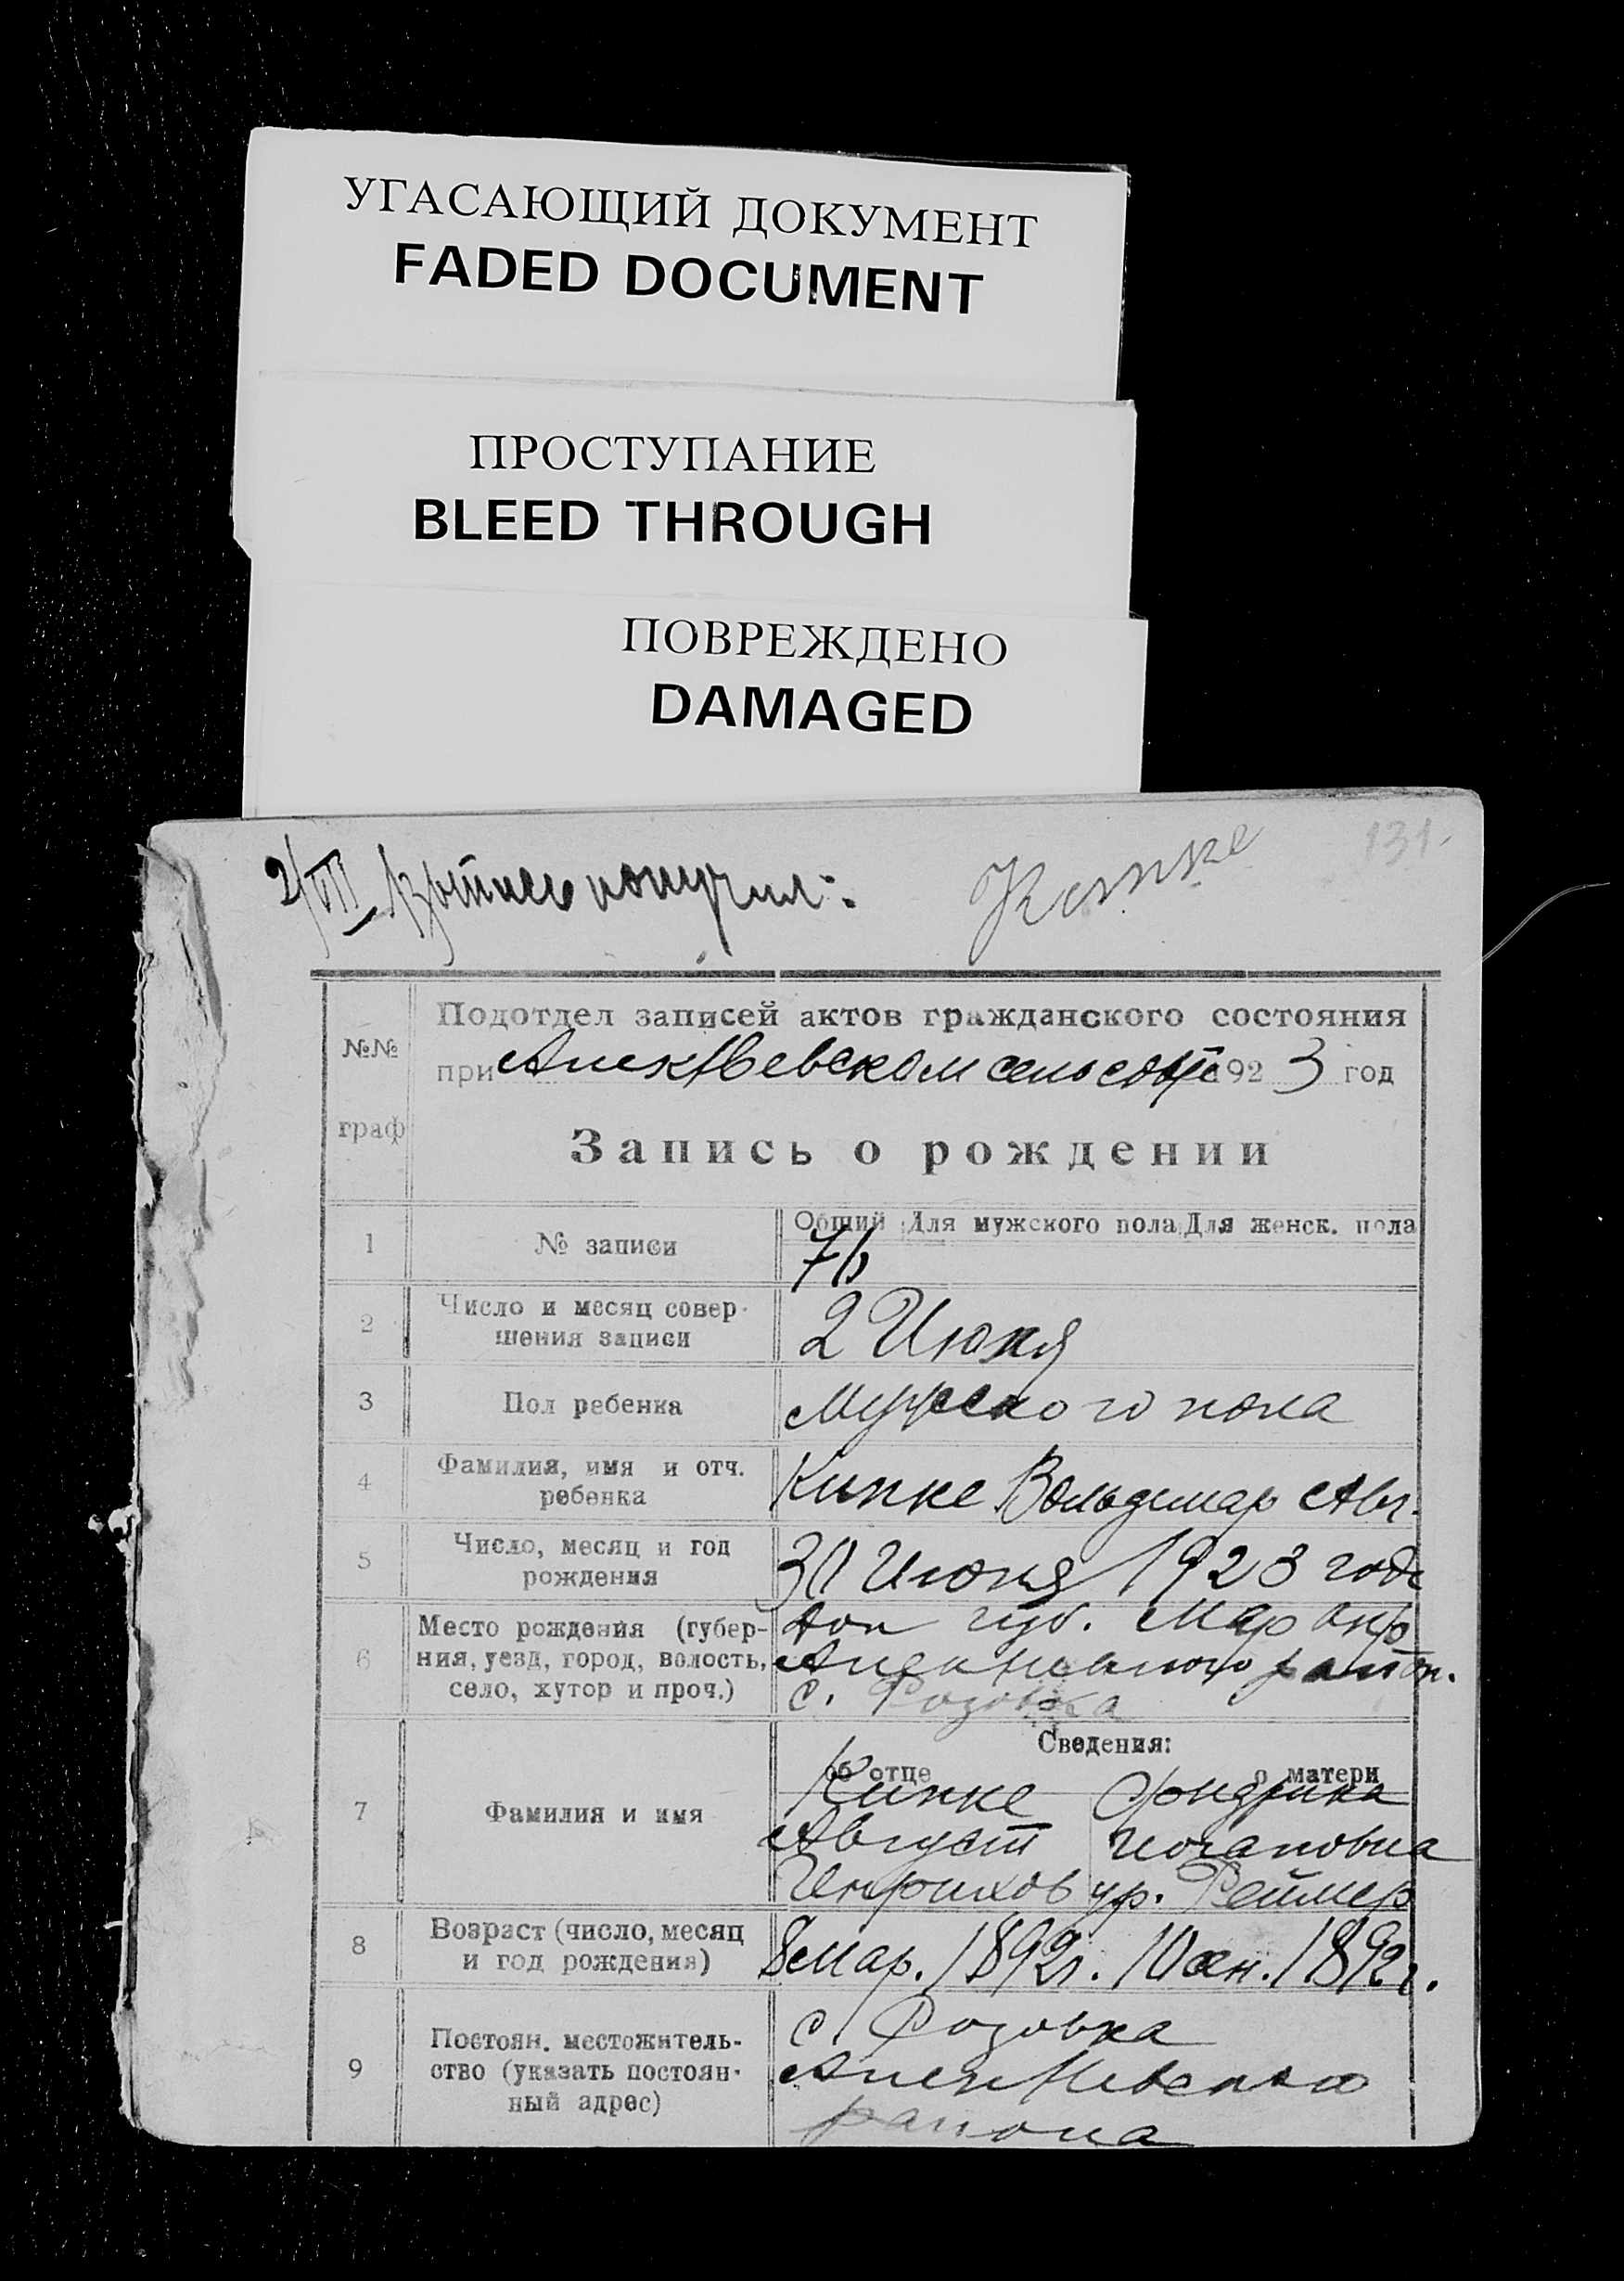 УГАСАЮЩИЙ ДОКУМЕНТ
FADED DOCUMENT
ПРОСТУПАНИЕ
BLEED THROUGH
ПОВРЕЖДЕНО
DAMAGED
131.
2/VII получил:
Кипке
№№ граф
Подотдел записей актов гражданского состояния
при сельсовете 1923 год
Запись о рождении
Общий Для мужского пола Для женск. пола
1 № записи 76
2 Число и месяц совершения записи 2 Июля
3 Пол ребенка Мужского пола
4 Фамилия, имя и отч. ребенка Кипке Вольдемар Авг.
5 Число, месяц и год рождения 30 Июня 1923 года
6 Место рождения (губерния, уезд, город, волость, село, хутор и проч.) Дон губ. Мар окр
район.
с. Розовка
Сведения:
об отце о матери
7 Фамилия и имя Кипке Фридрика
Август Иогановна
ур. Реймер
8 Возраст (число, месяц и год рождения) 8 Мар. 1892г. 10 ян. 1892г.
9 Постоян. местожительство (указать постоянный адрес) с. Розовка
района